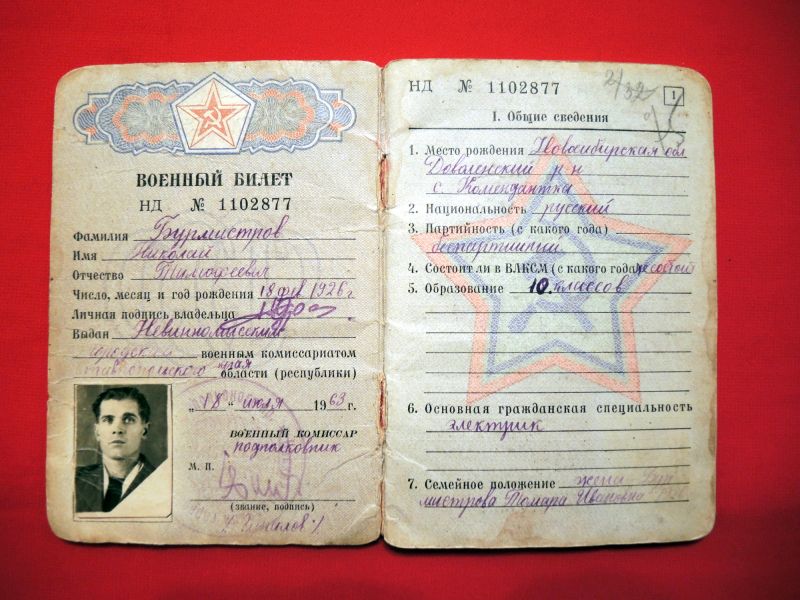 ВОЕННЫЙ БИЛЕТ
НД № 1102877
Фамилия Бурмистров
Имя Николай
Отчество Тимофеевич
Число, месяц и год рождения 18 фев 1926 г
Личная подпись владельца
Выдан Невинномысским
городским военным комиссариатом
Ставропольского края области (республики)
„18" июля 1963 г.
ВОЕННЫЙ КОМИССАР
подполковник
М. П.
(звание, подпись)
НД № 1102877
1
I. Общие сведения
1. Место рождения Новосибирская обл
Доволенский р-н
с. Комендантка
2. Национальность русский
3. Партийность (с какого года)
беспартийный
4. Состоит ли в ВЛКСМ (с какого года) не состоит
5. Образование 10 классов
6. Основная гражданская специальность
электрик
7. Семейное положение жена Бур
мистрова Тамара Ивановна